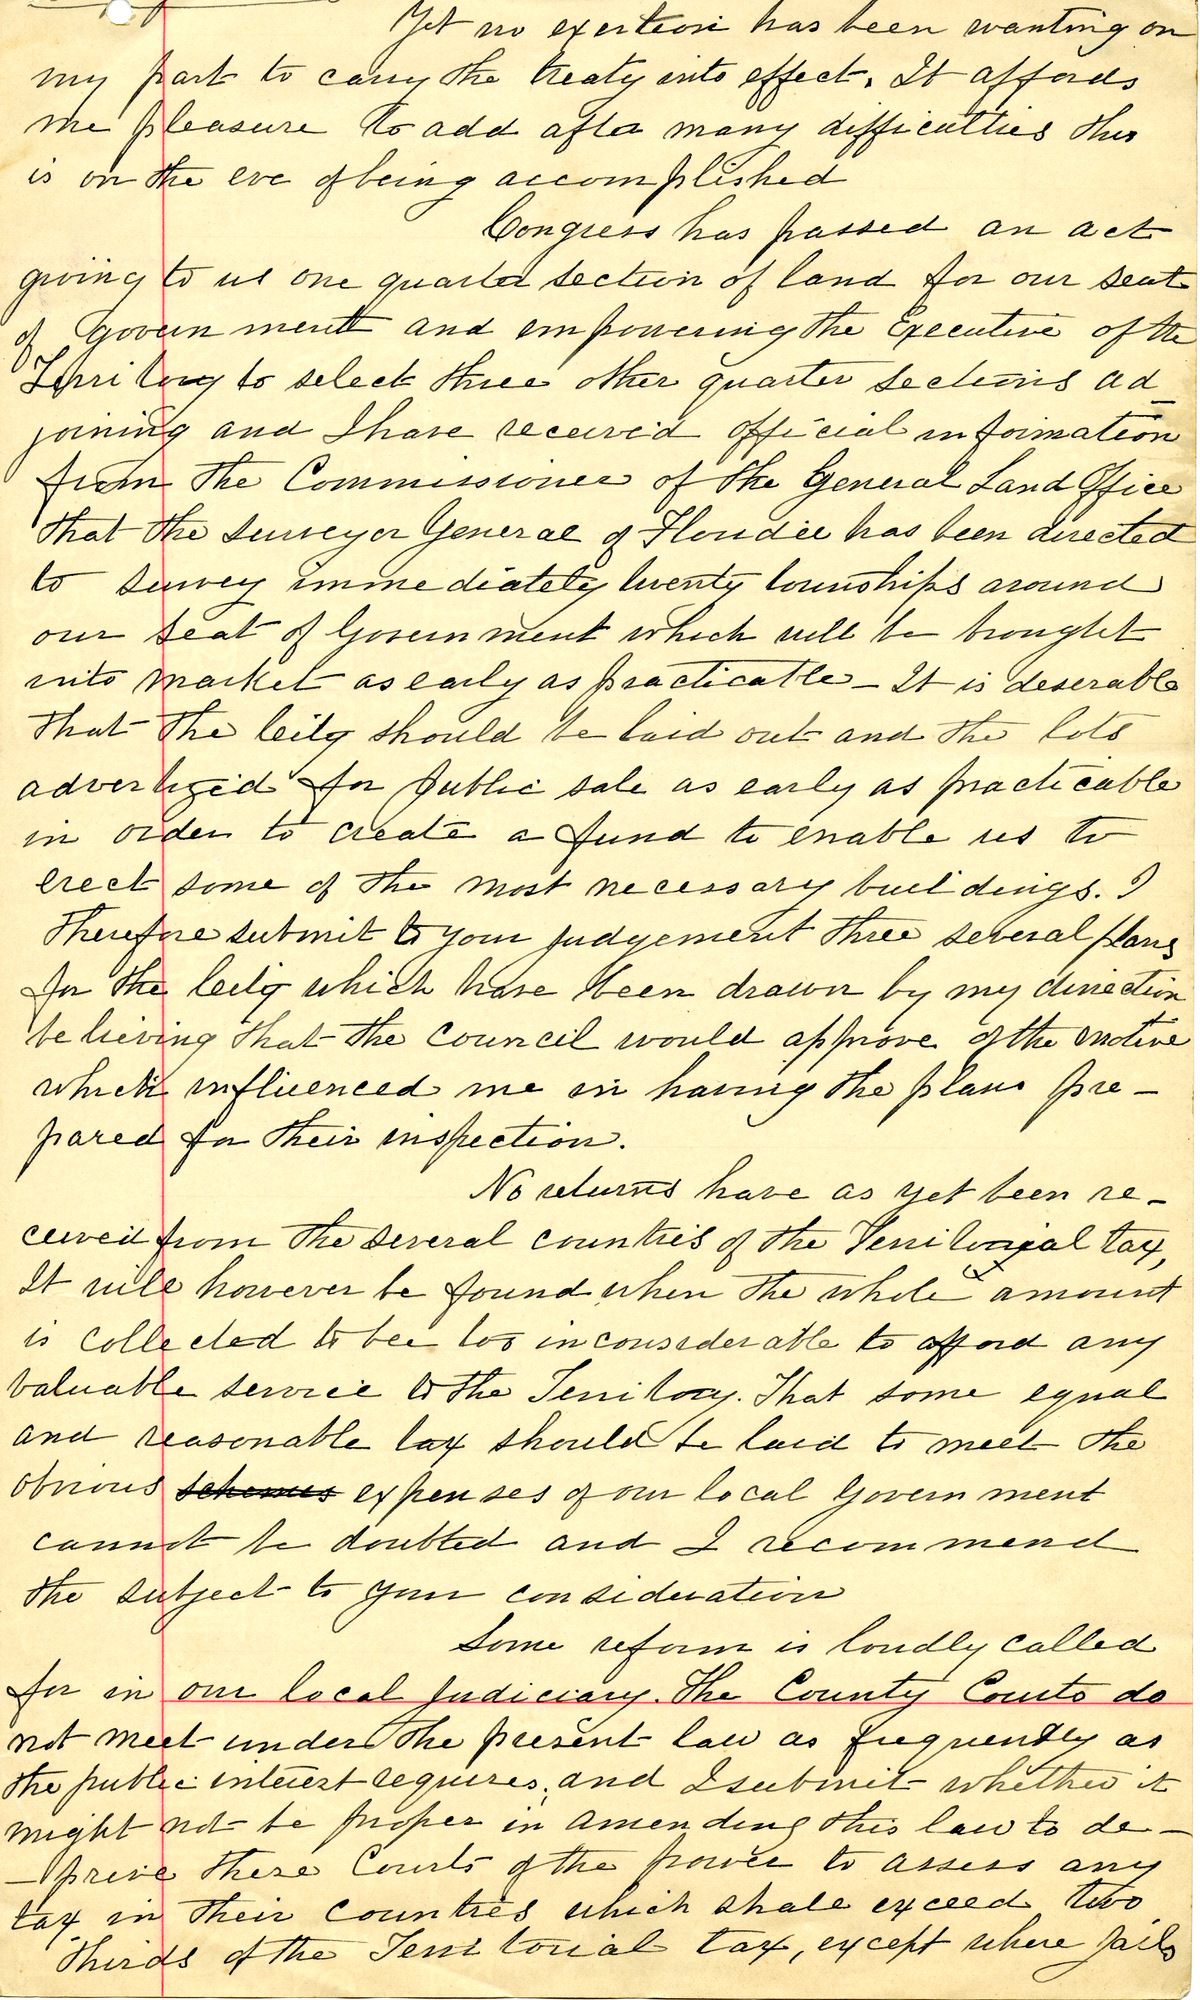 Yet no exertion has been wanting on
my part to carry the treaty into effect. It affords
me pleasure to add after many difficulties this
is on the eve of being accomplished
Congress has passed an act
giving to us one quarter section of land for our seat
of Government and empowering the Executive of the
Territory to select three other quarter sections ad_
joining and I have received official information
from the Commissioner of the General Land Office
that the Surveyor General of Floridie has been directed
to survey immediately twenty townships around
our seat of Government which will be brought
into market as early as practicable - It is deserable
that the City should be laid out and the lots
advertized for public sale as early as practicable
in order to create a fund to enable us to
erect some of the most necessary buildings. I
therefore submit to your judgement three several plans
for the City which have been drawn by my direction
believing that the council would approve of the motive
which influenced me in having the plans pre-
pared for their inspection.
No returns have as yet been re-
ceived from the several counties of the Territorial tax,
It will however be found when the whole amount
is collected to bee too inconsiderable to afford any
valuable service to the Territory. That some equal
and reasonable tax should be laid to meet the
obvious schemes expenses of our local Government
cannot be doubted and I recommend
the subject to your consideration
Some reform is loudly called
for in our local Judiciary. The County Courts do
not meet under the present law as frequently as
the public interest requires, and I submit whether it
might not be proper in amending this law to de-
-prive these Courts of the power to assess any
tax in their counties which shall exceed two
thirds of the Territorial tax, except where Jails